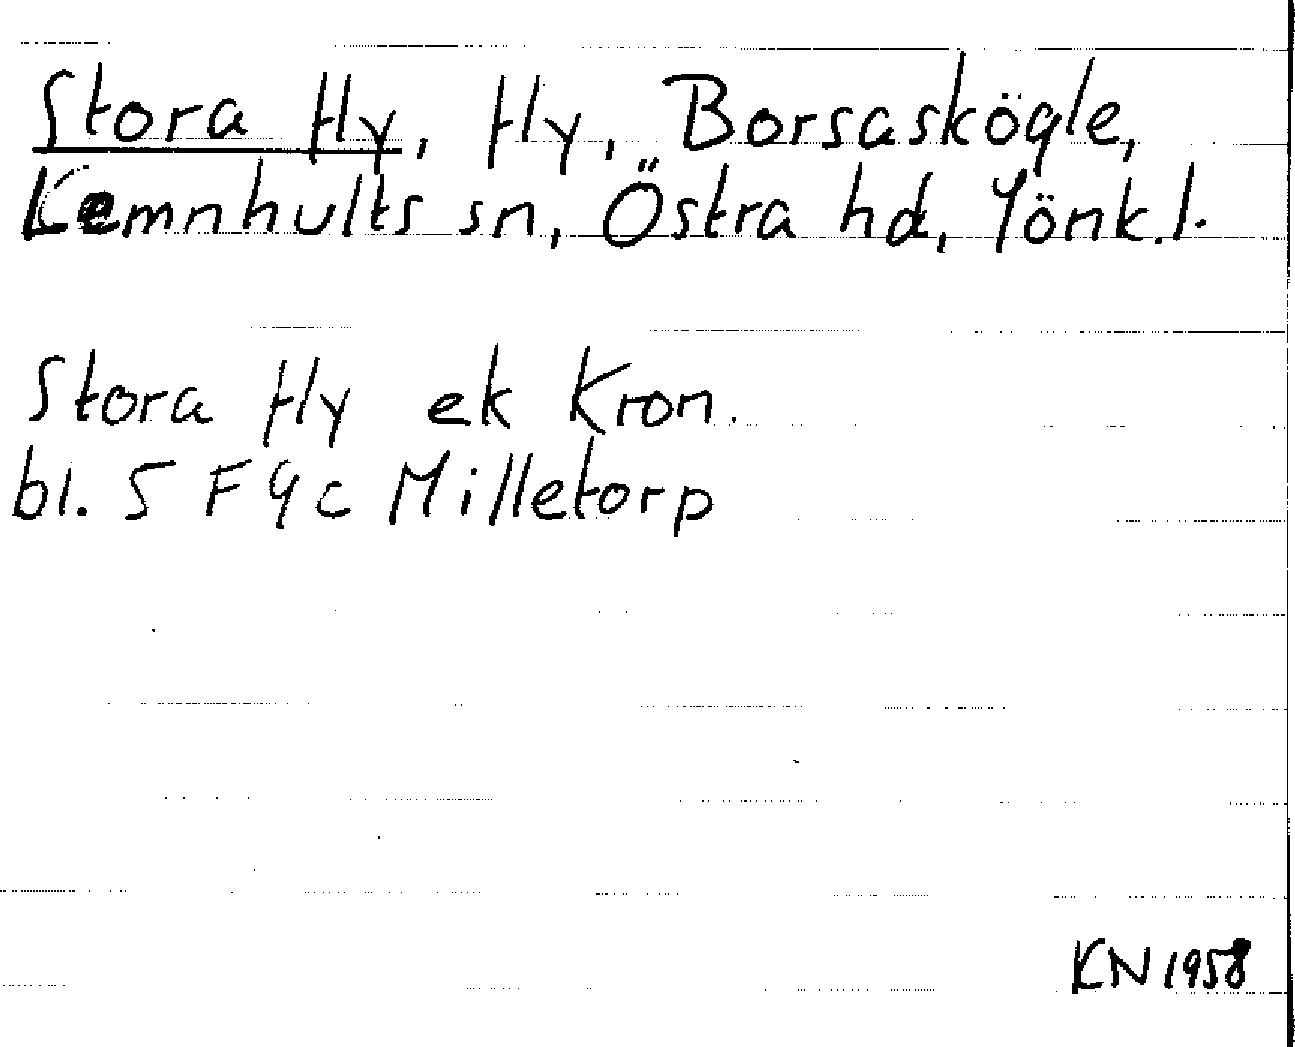 Stora fly, fly, Borsasköqle,
Lemnhults sn, Östra hd, Jönk.l.
Stora fly ek Kron.
bl. 5 F 9c Milletorp
KN 1958